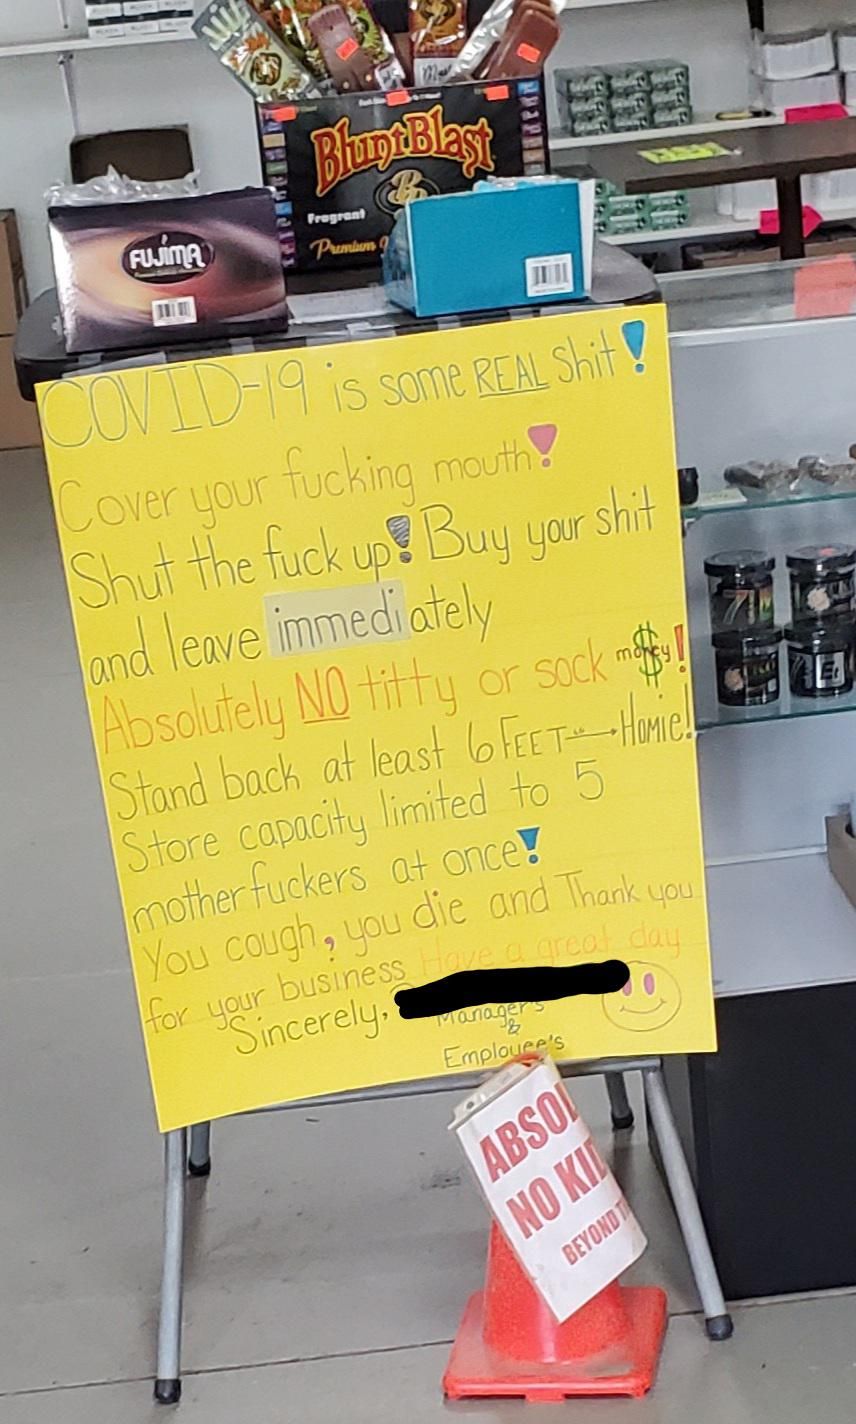 Blunt Blast
Fragrant
Premium
FUJIMA
COVID-19 is some REAL shit!
Cover your fucking mouth!
Shut the fuck up! Buy your shit
and leave immediately
Absolutely NO titty or sock money!
Stand back at least 6 FEET Homie!
Store capacity limited to 5
motherfuckers at once!
You cough, you die and Thank you
for your business Have a great day
Sincerely,
Managers
&
Employee's
ABSOL
NO KI
BEYOND